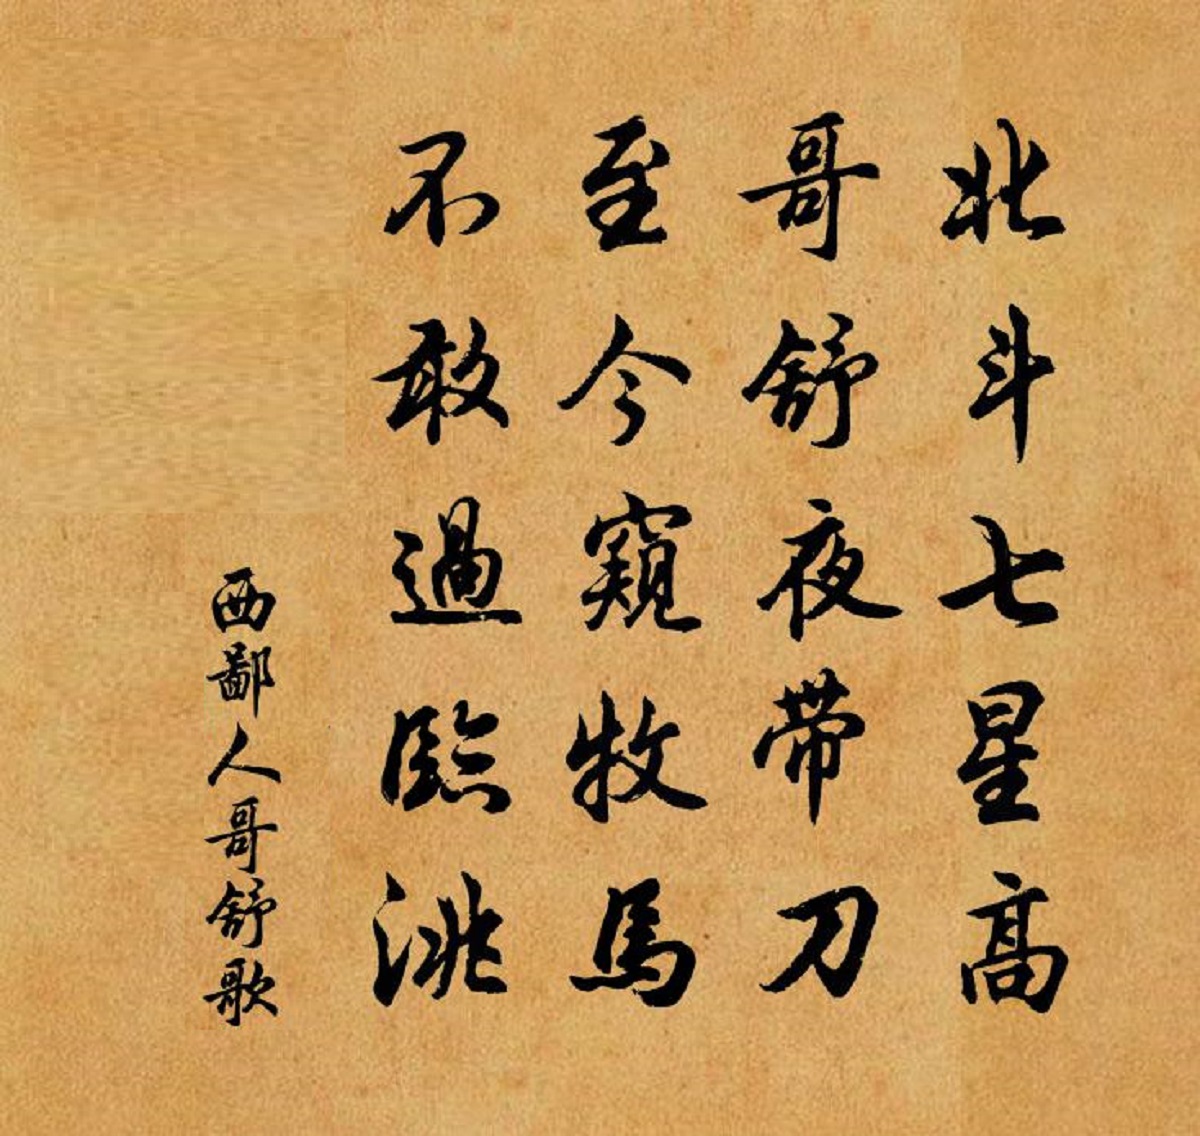 北斗七星高
哥舒夜带刀
至今窺牧馬
不敢過臨洮
西鄙人哥舒歌